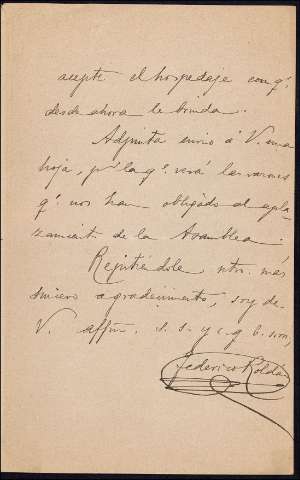 acepte el hospedaje con q.e
desde ahora le brinda.
Adjunta envio á V. una
hoja, p.r la q.e verá las razones
q.e nos han obligado al apla-
zamiento de la Asamblea.
Repitiéndole ntro. más
sincero agradecimiento, soy de
V. affmo. s. s. y c. q. b. s. m.,
Federico Roldán